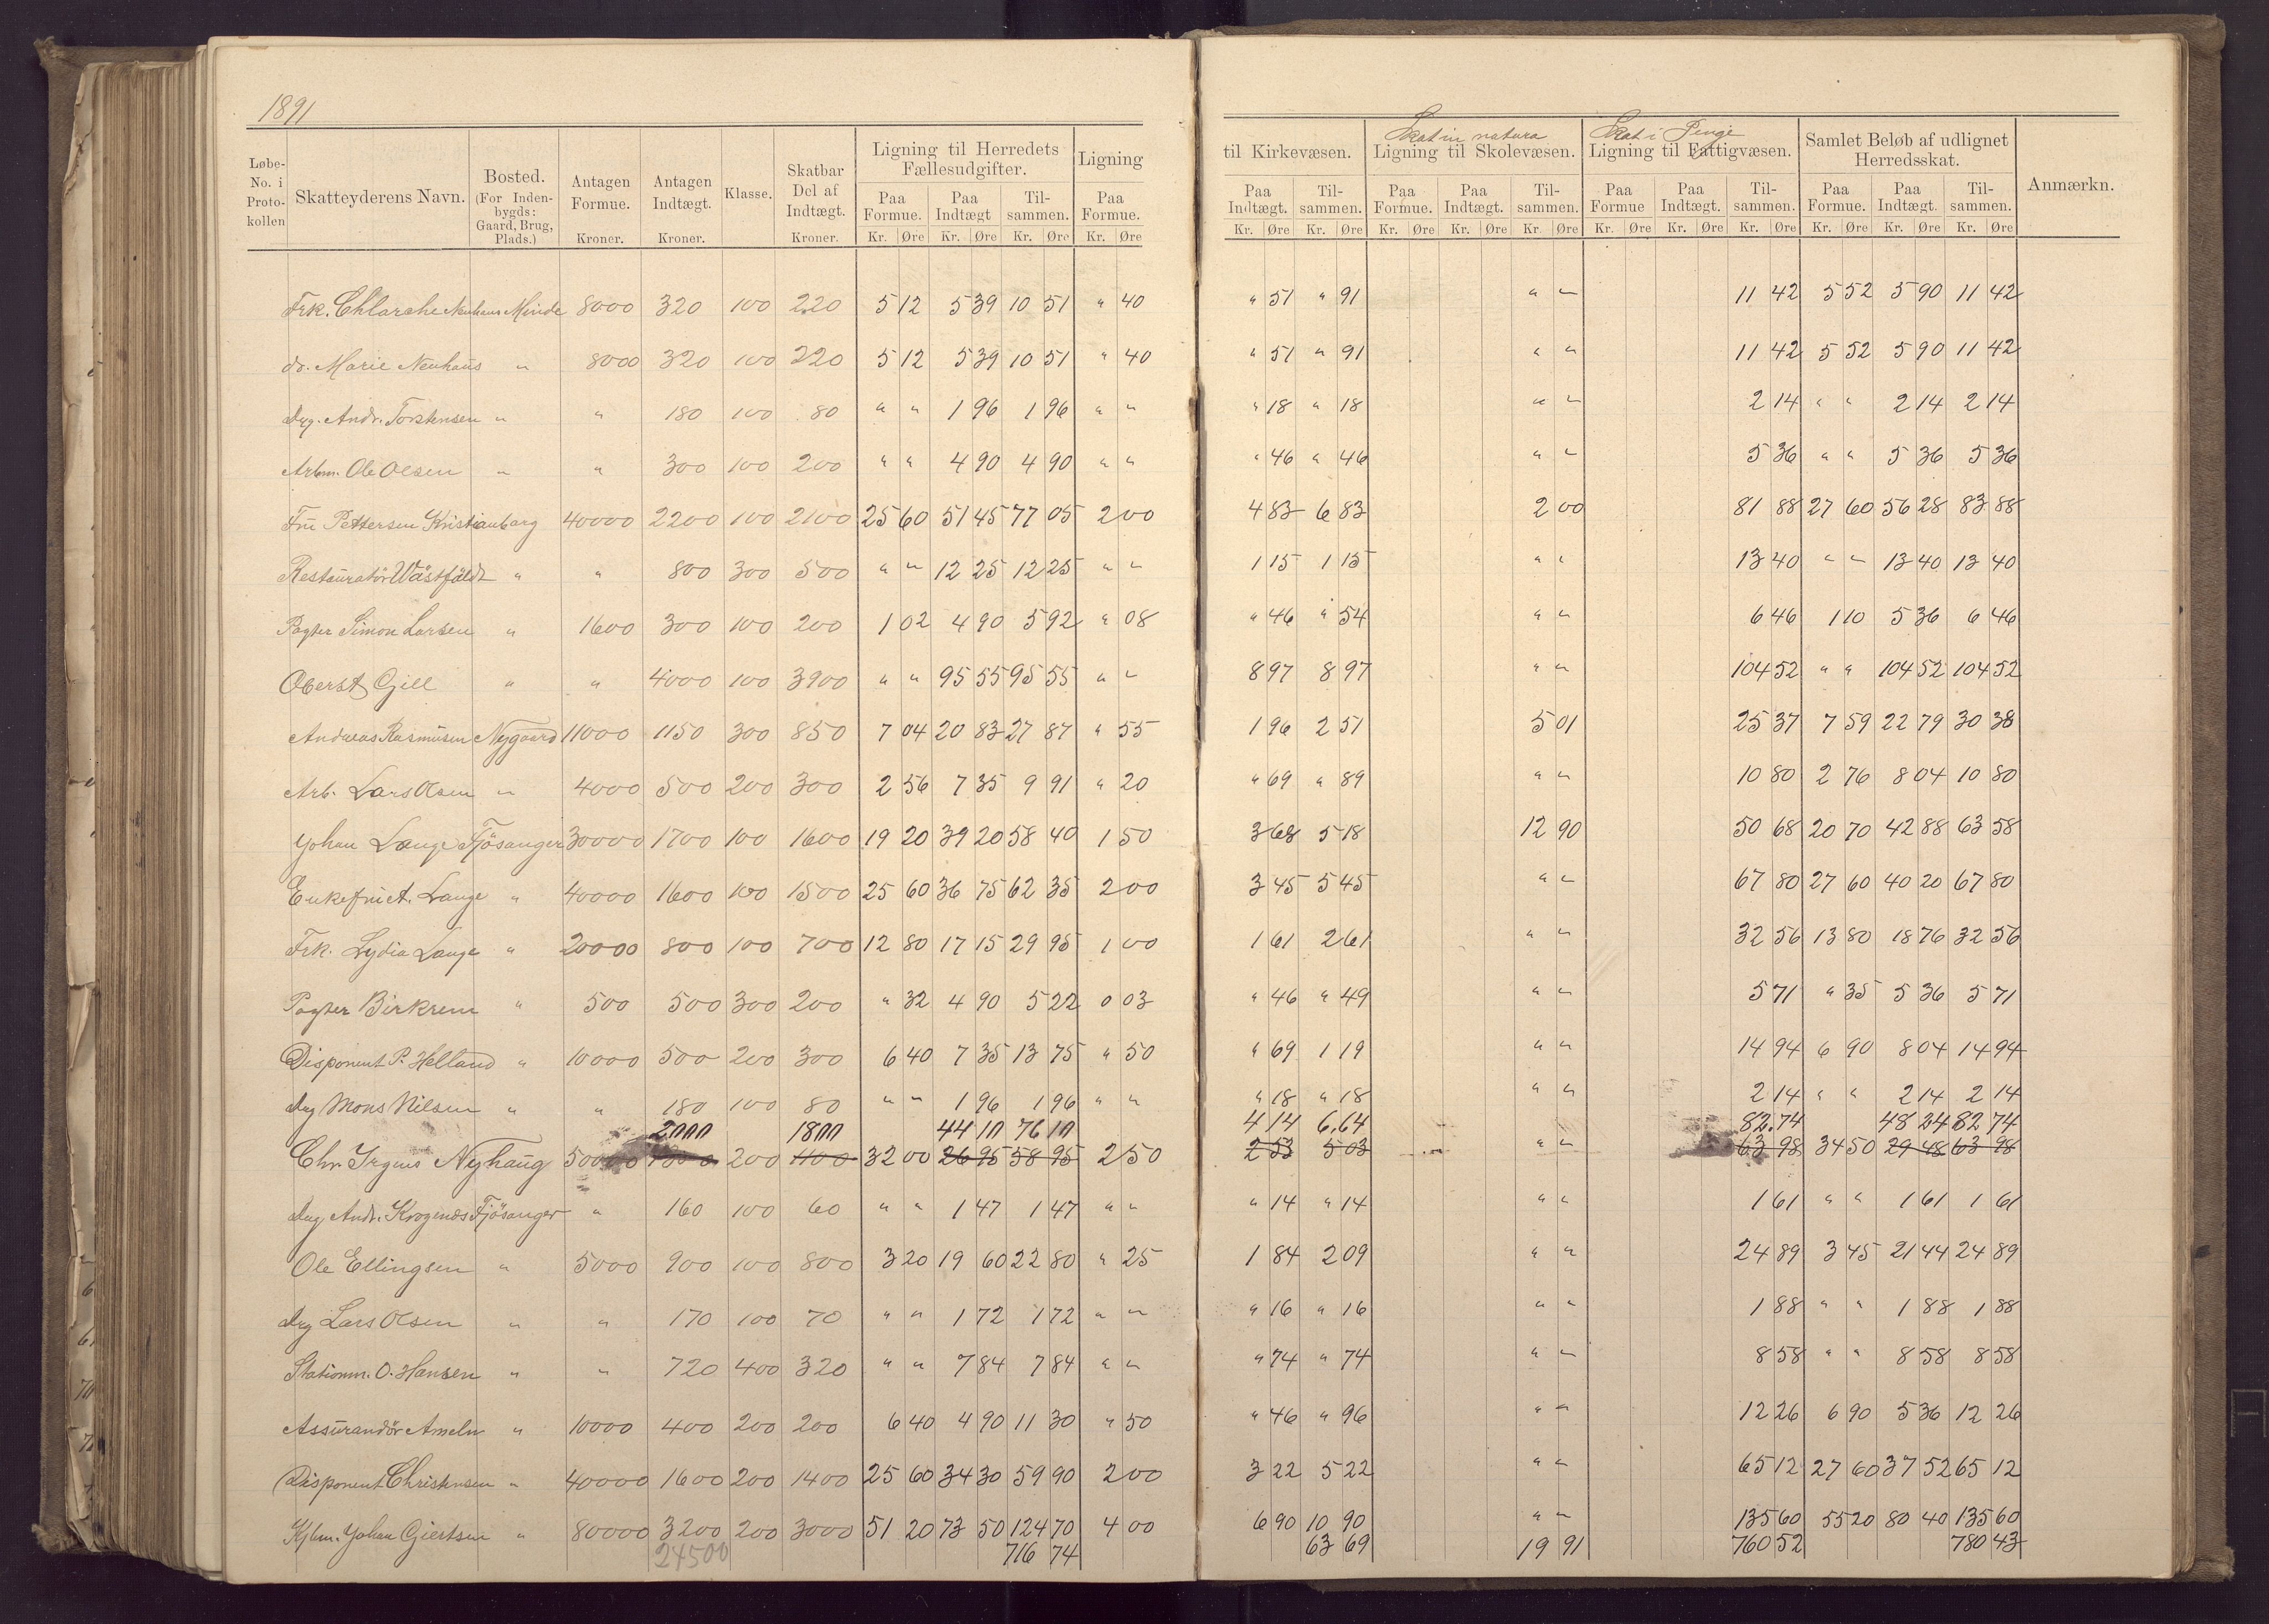 1891
Løbe-No. i Proto-kollen | Skatteyderens Navn. | Bosted. (For Inden-bygds: Gaard, Brug, Plads.) | Antagen Formue. Kroner. | Antagen Indtægt. Kroner. | Klasse. | Skatbar Del af Indtægt. Kroner. | Ligning til Herredets Fællesudgifter. Paa Formue. Kr. Øre | Paa Indtægt Kr. Øre | Til-sammen. Kr. Øre | Ligning Paa Formue. Kr. Øre | til Kirkevæsen. Paa Indtægt. Kr. Øre | Til-sammen. Kr. Øre | Skat in natura Ligning til Skolevæsen. Paa Formue. Kr. Øre | Paa Indtægt. Kr. Øre | Til-sammen. Kr. Øre | Skat i Penge Ligning til Fattigvæsen. Paa Formue Kr. Øre | Paa Indtægt. Kr. Øre | Til-sammen. Kr. Øre | Samlet Beløb af udlignet Herredsskat. Paa Formue. Kr. Øre | Paa Indtægt. Kr. Øre | Til-sammen. Kr. Øre | Anmærkn.
Frk. Neuhaus Minde 8000 320 100 220 5 12 5 39 10 51 " 40 " 51 " 91 " " 11 42 5 52 5 90 11 42
do. Marie Neuhaus " 8000 320 100 220 5 12 5 39 10 51 " 40 " 51 " 91 " " 11 42 5 52 5 90 11 42
Dag. Andr. Torstensen " " 180 100 80 " " 1 96 1 96 " " " 18 " 18 " " 2 14 " " 2 14 2 14
Arbm. Ole Olsen " " 300 100 200 " " 4 90 4 90 " " " 46 " 46 " " 5 36 " " 5 36 5 36
Fru Pettersen Kristianborg 40000 2200 100 2100 25 60 51 45 77 05 2 00 4 83 6 83 2 00 81 88 27 60 56 28 83 88
Restauratör Wästfäldt " " 800 300 500 " " 12 25 12 25 " " 1 15 1 15 " " 13 40 " " 13 40 13 40
Pagter Simon Larsen " 1600 300 100 200 1 02 4 90 5 92 " 08 " 46 " 54 " " 6 46 1 10 5 36 6 46
Oberst Gill " " 4000 100 3900 " " 95 55 95 55 " " 8 97 8 97 " " 104 52 " " 104 52 104 52
Andreas Rasmusen Nygaard 11000 1150 300 850 7 04 20 83 27 87 " 55 1 96 2 51 5 01 25 37 7 59 22 79 30 38
Arb. Lars Olsen " 4000 500 200 300 2 56 7 35 9 91 " 20 " 69 " 89 " " 10 80 2 76 8 04 10 80
Johan Lange Fjösanger 30000 1700 100 1600 19 20 39 20 58 40 1 50 3 68 5 18 12 90 50 68 20 70 42 88 63 58
Enkefru Lange " 40000 1600 100 1500 25 60 36 75 62 35 2 00 3 45 5 45 " " 67 80 27 60 40 20 67 80
Frk. Lydia Lange " 20000 800 100 700 12 80 17 15 29 95 1 00 1 61 2 61 " " 32 56 13 80 18 76 32 56
Pagter Birkrem " 500 500 300 200 " 32 4 90 5 22 0 03 " 46 " 49 " " 5 71 " 35 5 36 5 71
Disponent P. Helland " 10000 500 200 300 6 40 7 35 13 75 " 50 " 69 1 19 " " 14 94 6 90 8 04 14 94
Dag Mons Nilsen " " 180 100 80 " " 1 96 1 96 " " " 18 " 18 " " 2 14 " " 2 14 2 14
2000 1800 44 10 76 10 4 14 6,64 82.74 48 24 82 74
Chr Irgens Nyhaug 50000 1300 200 1100 32 00 26 95 58 95 2 50 2 53 5 03 " " 63 98 34 50 29 48 63 98
Dag Andr. Krogenæs Fjösanger " 160 100 60 " " 1 47 1 47 " " " 14 " 14 " " 1 61 " " 1 61 1 61
Ole Ellingsen " 5000 900 100 800 3 20 19 60 22 80 " 25 1 84 2 09 " " 24 89 3 45 21 44 24 89
Dag Lars Olsen " " 170 100 70 " " 1 72 1 72 " " " 16 " 16 " " 1 88 " " 1 88 1 88
Stationm. O. Hansen " " 720 400 320 " " 7 84 7 84 " " " 74 " 74 " " 8 58 " " 8 58 8 58
Assurandör Ameln " 10000 400 200 200 6 40 4 90 11 30 " 50 " 46 " 96 " " 12 26 6 90 5 36 12 26
Disponent Christensen " 40000 1600 200 1400 25 60 34 30 59 90 2 00 3 22 5 22 " " 65 12 27 60 37 52 65 12
Kjbm. Johan Giertsen " 80000 3200 200 3000 51 20 73 50 124 70 4 00 6 90 10 90 " " 135 60 55 20 80 40 135 60
24500 716 74 63 69 19 91 760 52 780 43